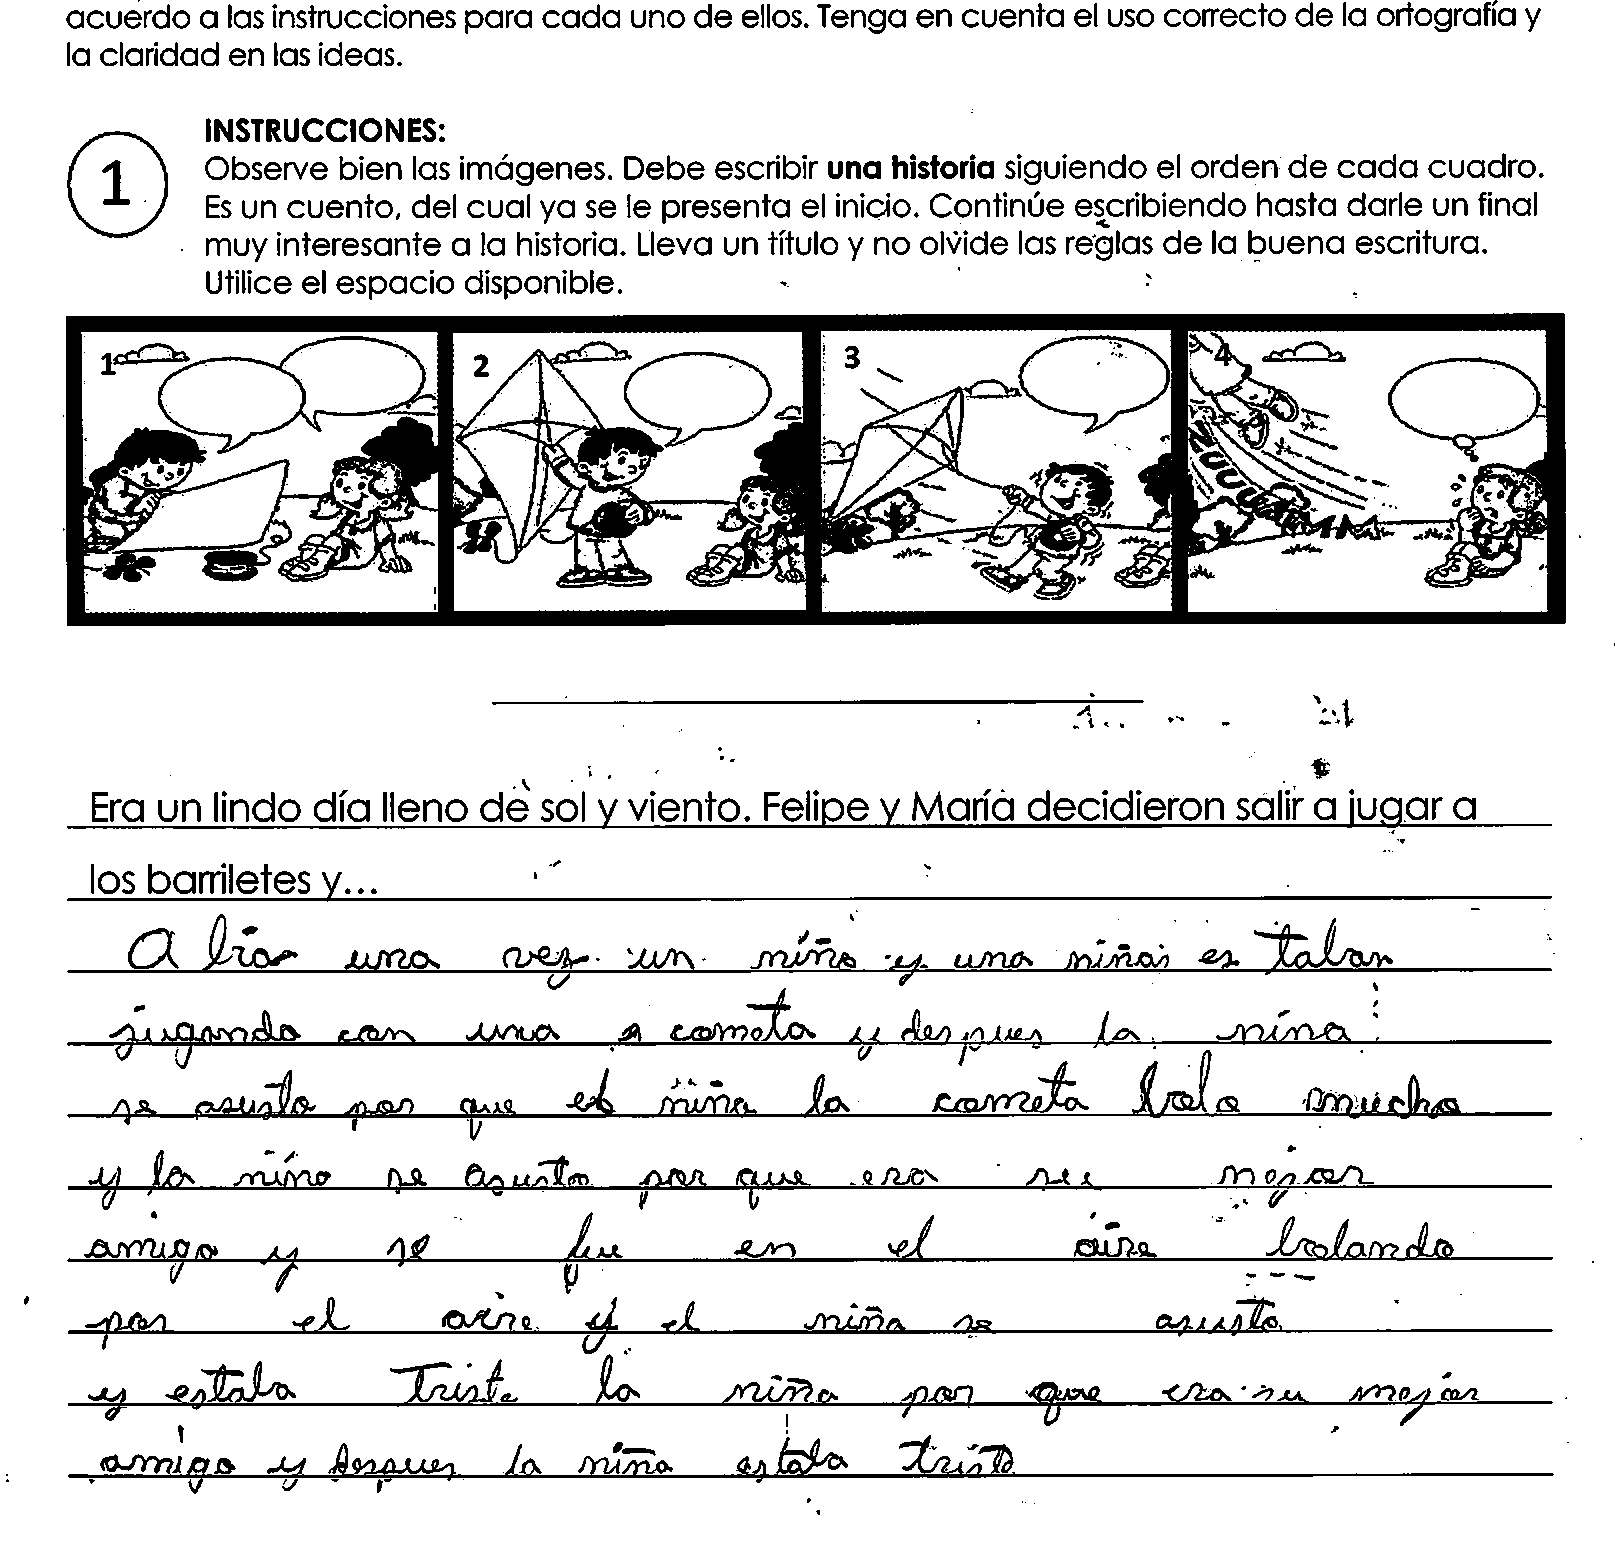 acuerdo a las instrucciones para cada uno de ellos. Tenga en cuenta el uso correcto de la ortografía y
la claridad en las ideas.
INSTRUCCIONES:
1
Observe bien las imágenes. Debe escribir una historia siguiendo el orden de cada cuadro.
Es un cuento, del cual ya se le presenta el inicio. Continúe escribiendo hasta darle un final
muy interesante a la historia. Lleva un título y no olvide las reglas de la buena escritura.
Utilice el espacio disponible.
1 2 3 4
ZUUUUMMM
Era un lindo día lleno de sol y viento. Felipe y María decidieron salir a jugar a
los barriletes y...
A bia una vez un niño y una niña es taban
jugando con una cometa y despues la niña
se asusto por que el niña la cometa bolo mucho
y la niño se asusto por que era su mejor
amigo y se fue en el aire bolando
por el aire y el niña se asusto
y estaba triste la niña por que era su mejor
amigo y despues la niña estaba triste